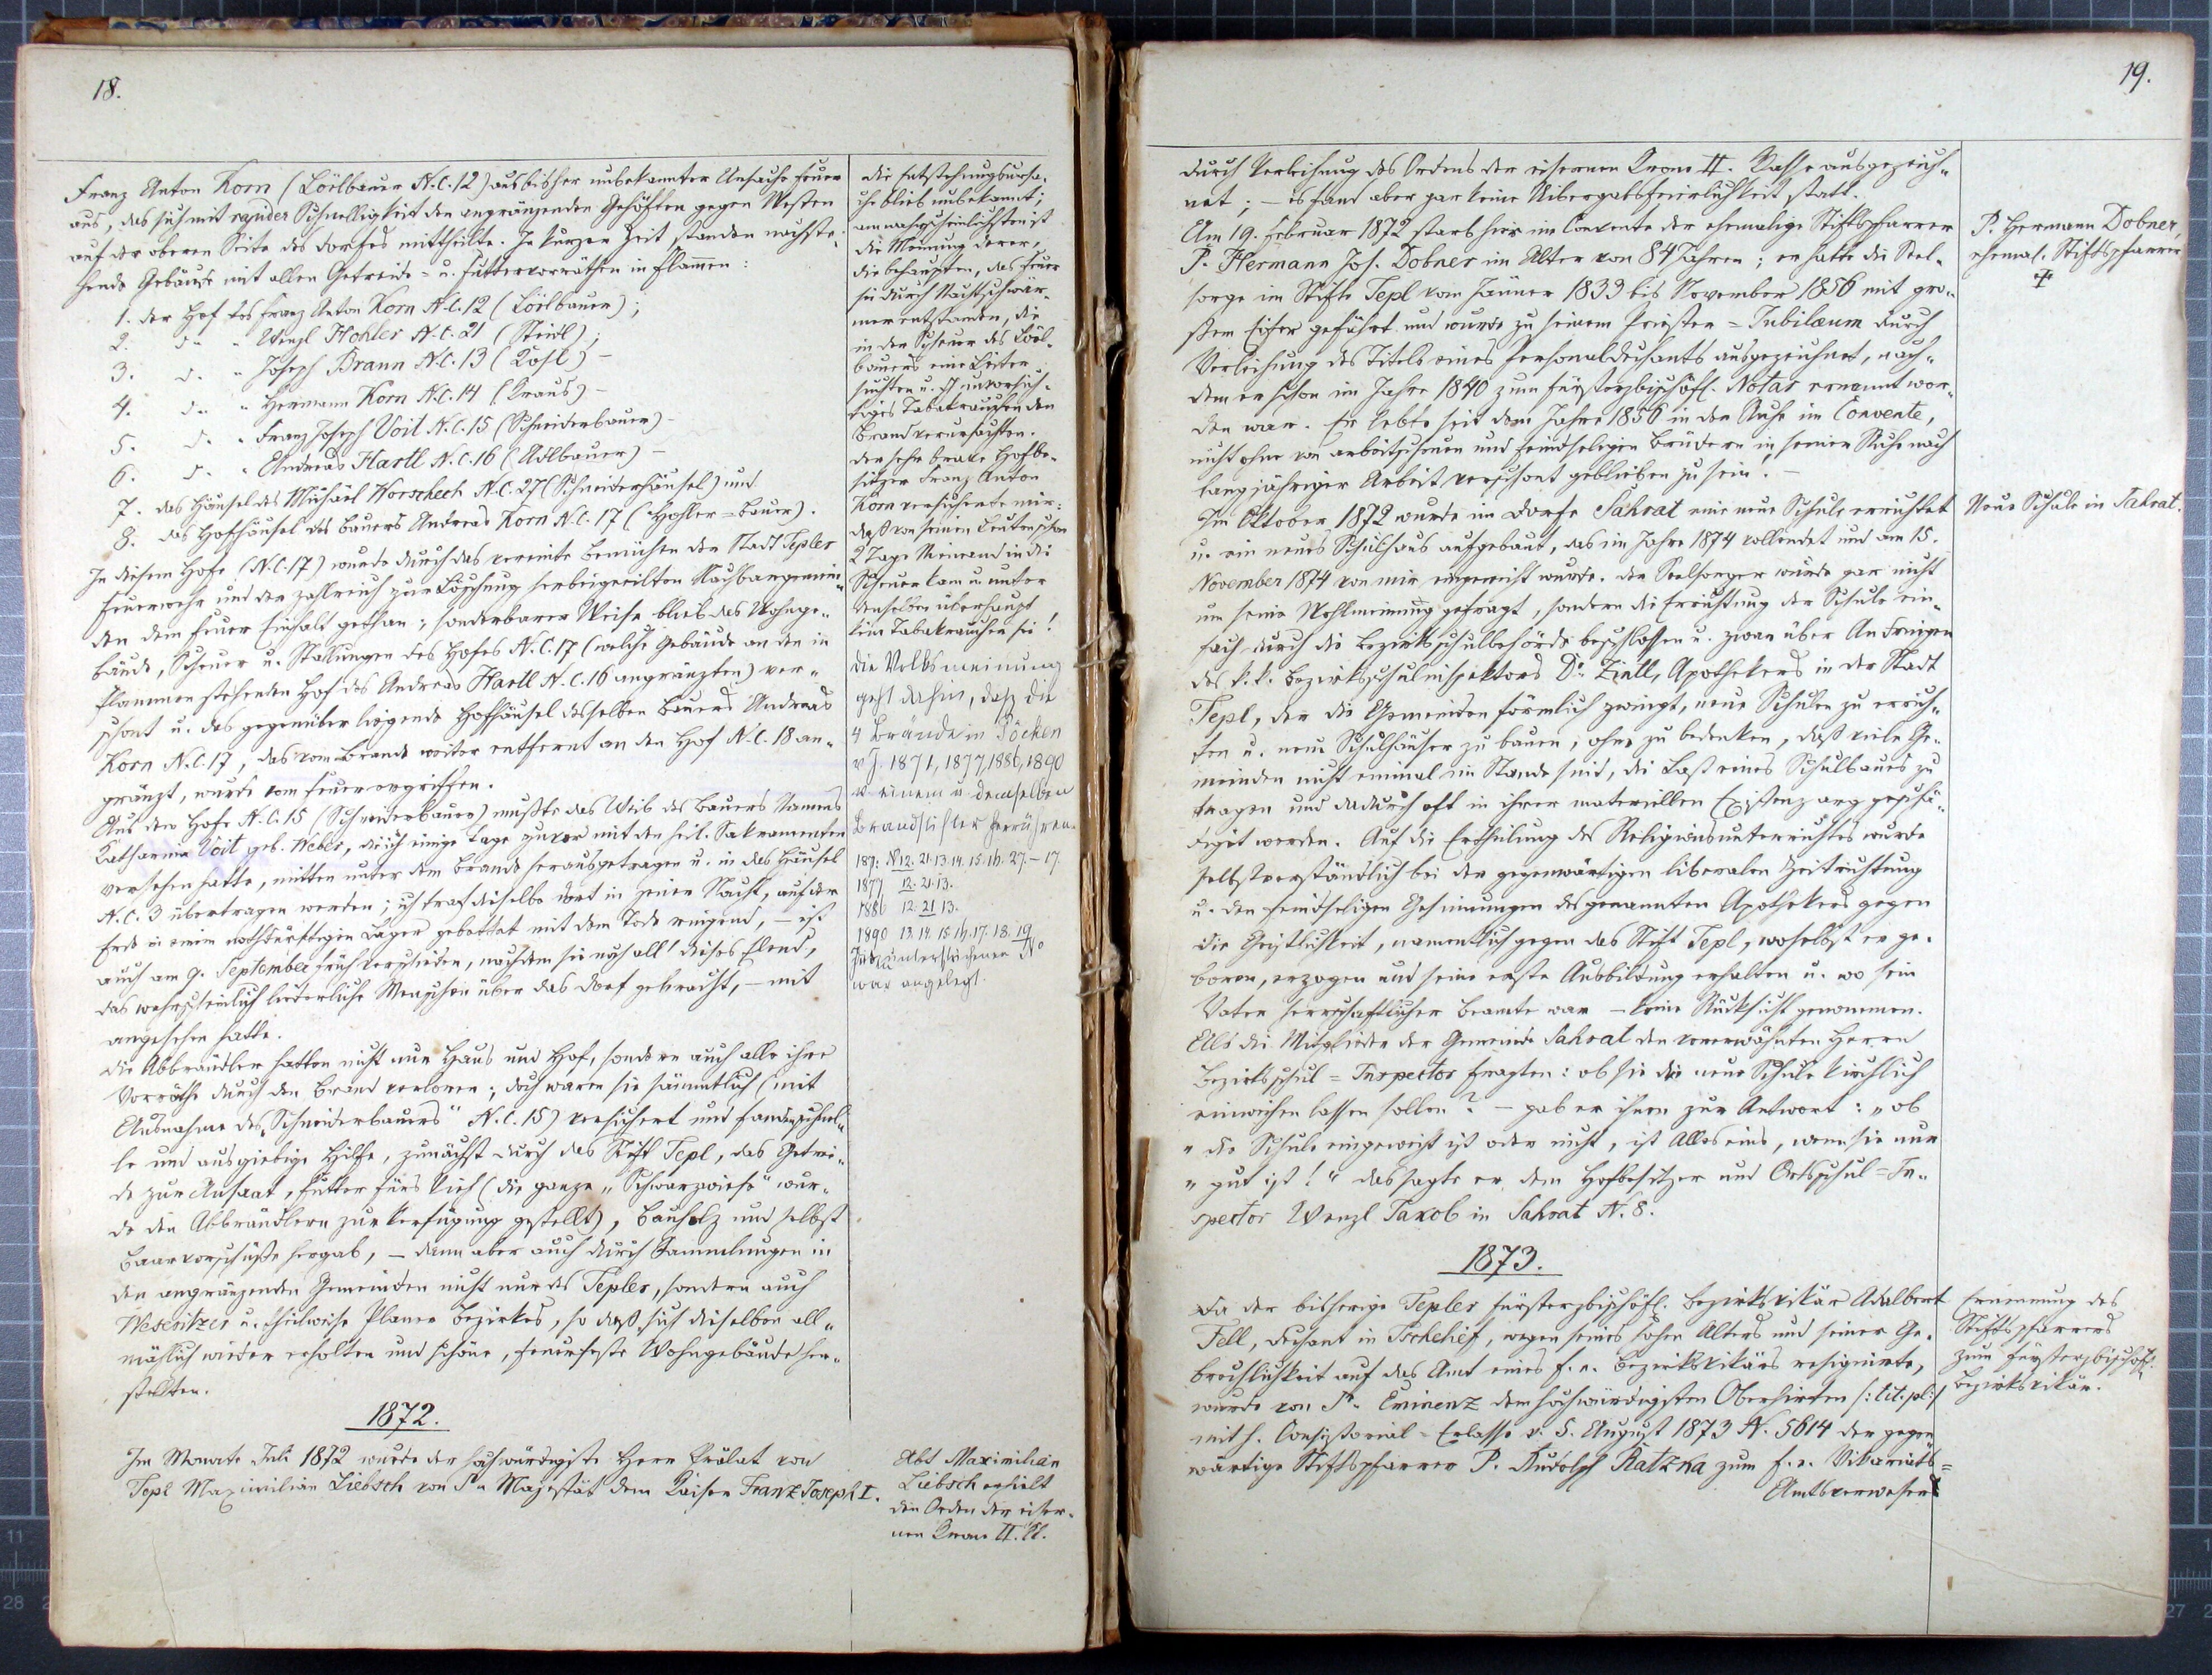 18.
Franz Anton Korn (Löilbauer N.C. 12) aus bisher unbekannter Ursache Feuer
aus, das sich mit rapider Schnelligkeit den angränzenden Gehöften gegen Westen
auf der oberen Seite des Dorfes mittheilte. In kurzer Zeit standen nachste-
hende Gebäude mit allen Getreide- u. Futtervorräthen in Flammen:
1. der Hof des Franz Anton Korn N.C. 12 (Löilbauer);
2. d. " Wenzl Hohler N.C. 21 (Steidl);
3. d. " Joseph Braun N.C. 13 (Lohl) –
4. d. " Hermann Korn N.C. 14 (Kraus) –
5. d. " Franz Joseph Voit N.C. 15 (Schneiderbauer) –
6. d. " Andreas Hartl N.C. 16 (Adlbauer) –
7. das Häusel des Michael Worschech N.C. 27 (Schneiderhäusel) und
8. das Hofhäusel des Bauers Andreas Korn N.C. 17 (Hohler-Bauer).
In diesem Hofe (N.C. 17) wurde durch das vereinte Bemühen der Stadt Tepler
Feuerwehr und der zahlreich zur Löschung herbeigeeilten Nachbargemein-
den dem Feuer Einhalt gethan; sonderbarer Weise blieb das Wohnge-
bäude, Scheuer u. Stallungen des Hofes N.C. 17 (welche Gebäude an den in
Flammen stehenden Hof des Andreas Hartl N.C. 16 angränzten) ver-
schont u. das gegenüber liegende Hofhäusel desselben Bauers Andreas
Korn N.C. 17, das vom Brande weiter entfernt an den Hof N.C. 18 an-
gränzt, wurde vom Feuer ergriffen.
Aus dem Hofe N.C. 15 (Schneiderbauer) mußte das Weib des Bauers Namens
Katharina Voit geb. Weber, die ich einige Tage zuvor mit den heil. Sakramenten
versehen hatte, mitten unter dem Brande herausgetragen u. in das Häusel
N.C. 3 übertragen werden; ich traf dieselbe dort in jener Nacht, auf der
Erde in einem nothdürftigen Lager gebettet mit dem Tode ringend, – ist
auch am 9. September früh verschieden, nachdem sie noch all' dieses Elend,
das wahrscheinlich liederliche Menschen über das Dorf gebracht, – mit
angesehen hatte.
Die Abbrändler hatten nicht nur Haus und Hof, sondern auch alle ihre
Vorräthe durch den Brand verloren; doch waren sie sämmtlich (mit
Ausnahme des „Schneiderbauers" N.C. 15) versichert und fanden schnel-
le und ausgiebige Hilfe, zunächst durch das Stift Tepl, das Getrei-
de zur Ansaat, Futter fürs Vieh (die ganze „Schwarzwiese" wur-
de den Abbrändlern zur Verfügung gestellt), Bauholz und selbst
Baarvorschüße hergab, – dann aber auch durch Sammlungen in
den angränzenden Gemeinden nicht nur des Tepler, sondern auch
Weseritzer u. theilweise Planer Bezirkes, so daß sich dieselben all-
mählich wieder erholten und schöne, feuerfeste Wohngebäude her-
stellten.
1872.
Im Monate Juli 1872 wurde der hochwürdigste Herr Prälat von
Tepl Maximilian Liebsch von Sr Majestät dem Kaiser Franz Joseph I.
Die Entstehungsursa-
che blieb unbekannt;
am wahrscheinlichsten ist
die Meinung derer,
die behaupten, das Feuer
sei durch Nachtschwär-
mer entstanden, die
in der Scheuer des Löil-
bauers eine Leiter
suchten u. durch unvorsich-
tiges Tabakrauchen den
Brand verursachten.
Der sehr brave Hofbe-
sitzer Franz Anton
Korn versicherte mir:
daß von seinen Leuten schon
2 Tage Niemand in die
Scheuer kam u. unter
denselben überhaupt
kein Tabakraucher sei!
Die Volksmeinung
geht dahin, daß die
4 Brände in Pöcken
v. J. 1871, 1877, 1886, 1890
v. einem u. demselben
Brandstifter herrühren.
187: N 12. 21. 13. 14. 15. 16. 27. – 17.
1877 12. 21. 13.
1886 12. 21. 13.
1890 13. 14. 15. 16. 17. 18. 19
In unterstrichener No
war angelegt.
Abt Maximilian
Liebsch erhielt
den Orden der eiser-
nen Krone II. Kl.
19.
durch Verleihung des Ordens der eisernen Krone II. Klasse ausgezeich-
net; – es fand aber gar keine Uibergabsfeierlichkeit statt.
Am 19. Februar 1872 starb hier im Convente der ehemalige Stiftspfarrer
P. Hermann Jos. Dobner im Alter von 84 Jahren; er hatte die Seel-
sorge im Stifte Tepl vom Jänner 1833 bis November 1856 mit gro-
ßem Eifer geführt und wurde zu seinem Priester-Jubilaeum durch
Verleihung des Titels eines Personaldechants ausgezeichnet, nach-
dem er schon im Jahre 1840 zum fürsterzbischöfl. Notar ernannt wor-
den war. Er lebte seit dem Jahre 1856 in der Ruhe im Convente,
nicht ohne von arbeitsscheuen und feindseligen Brüdern in seiner Ruhe nach
langjähriger Arbeit verschont geblieben zu sein! –
Im Oktober 1872 wurde im Dorfe Sahrat eine neue Schule errichtet
u. ein neues Schulhaus aufgebaut, das im Jahre 1874 vollendet und am 15.
November 1874 von mir eingeweiht wurde. Der Seelsorger wurde gar nicht
um seine Wohlmeinung gefragt, sondern die Errichtung der Schule ein-
fach durch die Bezirksschulbehörde beschlossen u. zwar über Andringen
des k. k. Bezirksschulinspektors Dr Zintl, Apothekers in der Stadt
Tepl, der die Gemeinden förmlich zwingt, neue Schulen zu errich-
ten u. neue Schulhäuser zu bauen, ohne zu bedenken, daß viele Ge-
meinden nicht einmal im Stande sind, die Last eines Schulbaues zu
tragen und dadurch oft in ihrer materiellen Existenz arg geschä-
digt werden. Auf die Ertheilung des Religionsunterrichtes wurde
selbstverständlich bei der gegenwärtigen liberalen Zeitrichtung
u. den feindseligen Gesinnungen des genannten Apothekers gegen
die Geistlichkeit, namentlich gegen das Stift Tepl, woselbst er ge-
boren, erzogen und seine erste Ausbildung erhalten u. wo sein
Vater herrschaftlicher Beamte war – keine Rücksicht genommen.
Als die Mitglieder der Gemeinde Sahrat den vorerwähnten Herrn
Bezirksschul-Inspector fragten: ob sie die neue Schule kirchlich
einweihen lassen sollen? – gab er ihnen zur Antwort: „ob
„ die Schule eingeweiht ist oder nicht, ist Alles eins, wenn sie nur
„ gut ist!" das sagte er dem Hofbesitzer und Ortsschul-In-
spector Wenzl Jakob in Sahrat N. 8.
1873.
Da der bisherige Tepler fürsterzbischöfl. Bezirksvikär Adalbert
Fell, Dechant in Tschelief, wegen seines hohen Alters und seiner Ge-
brechlichkeit auf das Amt eines f. e. Bezirksvikärs resignirte,
wurde von Sr Eminenz dem hochwürdigsten Oberhirten /: tit. pl: /
mit h. Consistorial-Erlasse v. 5. August 1873 N. 5614 der gegen-
wärtige Stiftspfarrer P. Rudolph Ratzka zum f. e. Vikariats-
Amtsverweser
P. Hermann Dobner,
ehemal. Stiftspfarrer
✝
Neue Schule in Sahrat.
Ernennung des
Stiftspfarrers
zum fürsterzbischöfl.
Bezirksvikär.